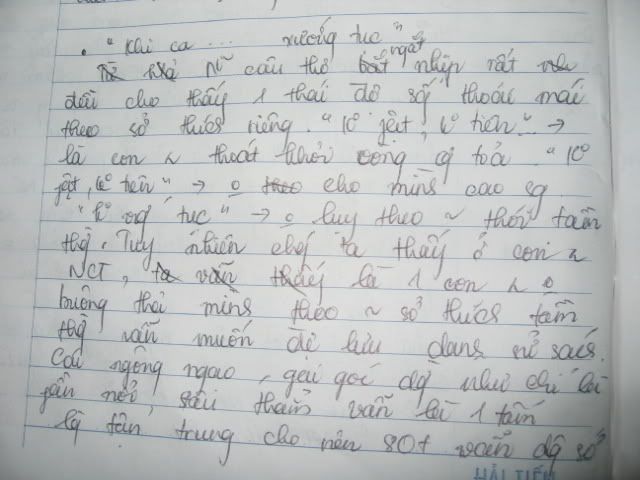 . "Khi ca ... xuống tục"
Nữ câu thơ ngắt nhịp rất
dài cho thấy 1 thái độ số thoải mái
theo sở thích riêng. "K° Phật, k° tiên"... →
là con ~ thoát khỏi vòng cg tỏa. "K°
Phật, k° tiên" → o theo cho mình cao sg.
"K° vg' tục" → o luy theo ~ thói tầm
thg`. Tuy nhiên chg' ta thấy ở con ~
NCT, ta vẫn thấy là 1 con ~ o
buông thả mình theo ~ sở thích tầm
thg` vẫn muốn để lưu danh sử sách.
Cái ngông ngao, gai góc dg` như chỉ là
phần nổi, sâu thẳm vẫn là 1 tấm
lg` tận trung cho nên 80t vẫn
HẢI TIẾN